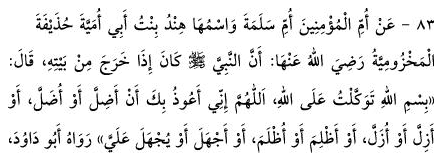 ٨٣ - عَنْ أُمِّ الْمُؤْمِنِينَ أُمِّ سَلَمَةَ وَاسْمُهَا هِنْدُ بِنْتُ أَبِي أُمَيَّةَ حُذَيْفَةَ
الْمَخْزُومِيَّةِ رَضِيَ اللهُ عَنْهَا: أَنَّ النَّبِيَّ ﷺ كَانَ إِذَا خَرَجَ مِنْ بَيْتِهِ، قَالَ:
«بِسْمِ اللهِ تَوَكَّلْتُ عَلَى اللهِ، اَللَّهُمَّ إِنِّي أَعُوذُ بِكَ أَنْ أَضِلَّ أَوْ أُضَلَّ، أَوْ
أَزِلَّ أَوْ أُزَلَّ، أَوْ أَظْلِمَ أَوْ أُظْلَمَ، أَوْ أَجْهَلَ أَوْ يُجْهَلَ عَلَيَّ» رَوَاهُ أَبُو دَاوُدَ،